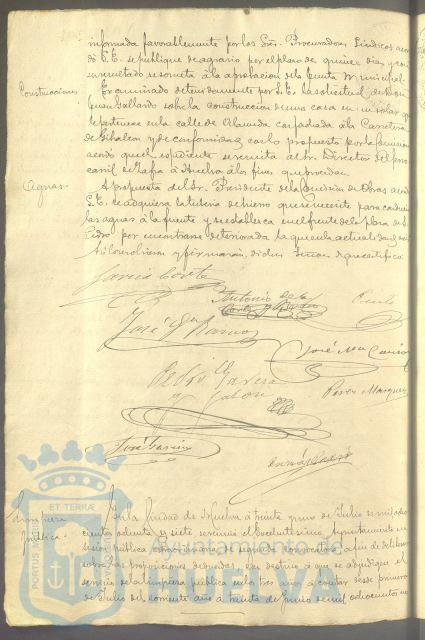 informada favorablemente por los Sres. Procuradores Síndicos acor
dó S.E. se publique de agravio por el plazo de quince días, y con
su resultado se someta á la aprobacion de la Junta Municipal.
Construcciones
Examinado detenidamente por S.E. la solicitud de
Juan Gallardo sobre la construccion de una casa en un solar que
le pertenece en la calle de Alameda con fachada á la Carretera
de Gibraleon y de conformidad con lo propuesto por la Comision
acordó que el espediente se remita al Sr. Director del ferro
carril de Zafra á Huelva á los fines que procedan.
Aguas.
A propuesta del Sr. Presidente de la Comision de Obras acordó
S.E. se adquiera la tubería de hierro que se necesite para conducir
las aguas á la fuente y se establezca en el frente de la plaza de S.
Pedro por encontrarse deteriorada la que
Así lo resolvieron y firmarán, dichos Señores de que certifico.
García Cortés
Antonio de la
Corte y
José Ma
José Ma
Pedro García
y Jalon
Perez Marquez
José García
Limpieza
pública
En la Ciudad de Huelva á treinta y uno de Julio de mil ocho
cientos ochenta y siete reunido el Excelentísimo Ayuntamiento en
sesion pública extraordinaria de segunda convocatoria á fin de deliberar
sobre las proposiciones
servicio de la limpieza pública en los tres años á contar desde primero
de Julio del corriente año á treinta de Junio de mil ochocientos no
ET TERRÆ
PORTUS MARIS
Ayuntamiento de
HUELVA